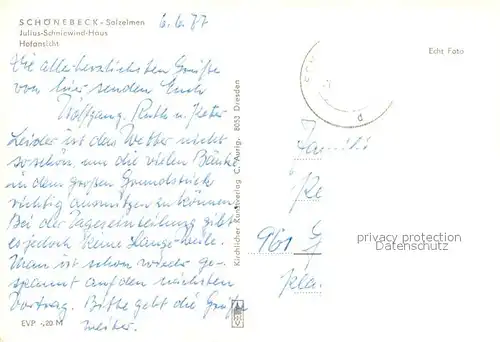 SCHÖNEBECK - Salzelmen
6.6.77
Julius-Schniewind-Haus
Hofansicht
Echt Foto
Die allerherzlichsten Grüße
von hier senden Euch
Wolfgang, Ruth u. Peter
Leider ist das Wetter nicht
so schön, um die vielen Bänke
in dem großen Grundstück
richtig ausnützen zu können.
Bei der Tageseinteilung gibt
es jedoch keine Langeweile.
Man ist schon wieder ge-
spannt auf den nächsten
Vortrag. Bitte gebt die Grüße
weiter.
EVP -,20 M
Kirchlicher Kunstverlag C. Aurig, 8053 Dresden
Famili
961 G
privacy protection
Datenschutz